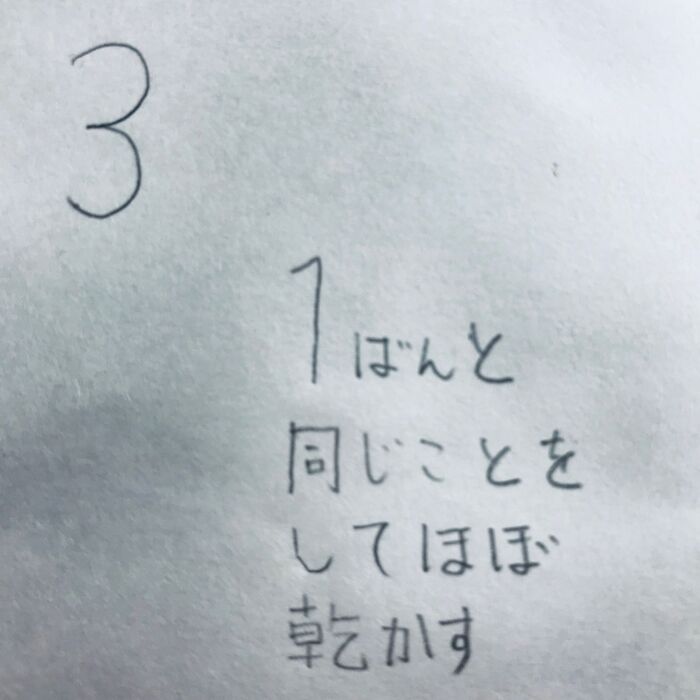 3
1ばんと
同じことを
してほぼ
乾かす